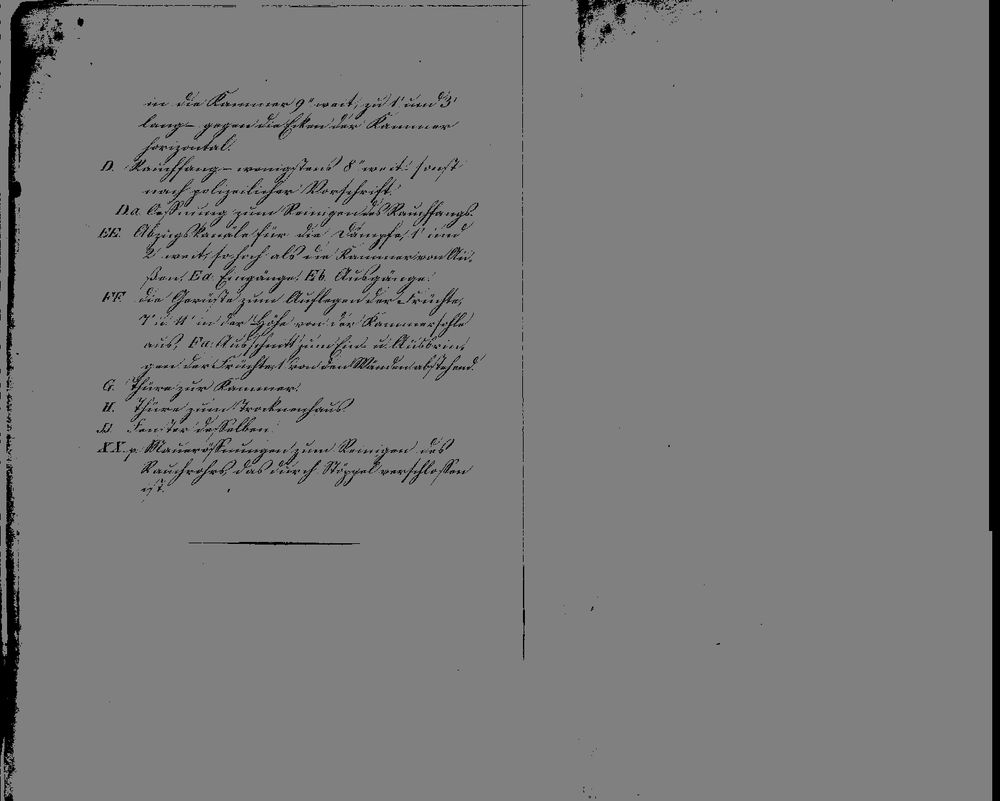 in die Kammer 9" weit, zu 1' und 3'
lang – gegen die Ecken der Kammer
horizontal.
D. Rauchfang – wenigstens 8" weit: sonst
nach polizeilicher Vorschrift.
D.a. Oeffnung zum Reinigen des Rauchfangs.
EE. Abzugskanäle für die Dämpfe, 1' und
2' weit, so hoch als die Kammer von Au-
ßen. Ea. Eingänge. Eb. Ausgänge.
FF. die Gerüste zum Auflegen der Früchte,
7' u 4' in der Höhe von der Kammersohle
aus. Fa. Ausschnitt zum Ein- u. Ausbrin-
gen der Früchte, von den Wänden abstehend.
G. Thüre zur Kammer.
H. Thüre zum Trocknenhaus.
Fenster desselben.
XX. p. Maueröffnungen zum Reinigen des
Rauchrohrs, das durch Stöppel verschlossen
ist.